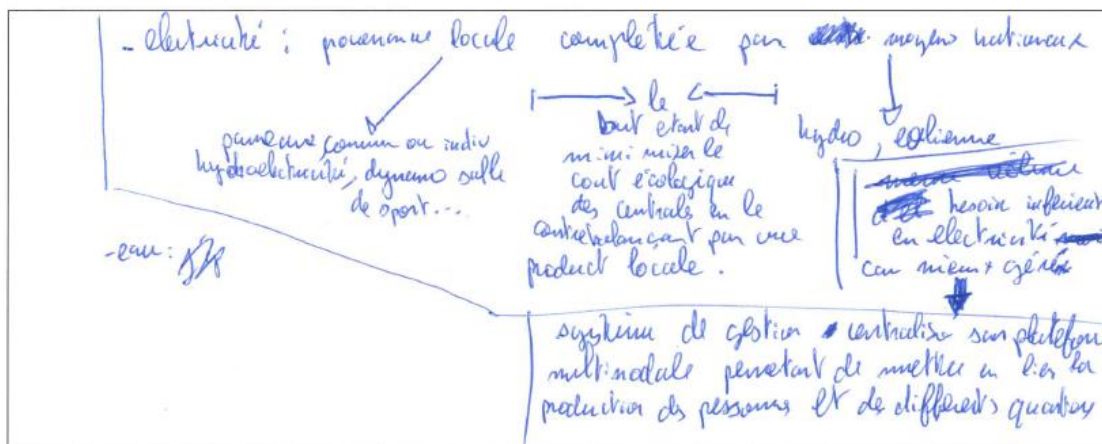 - electricité : provenance locale completée par moyens nationaux
panneaux commun ou indiv
hydroelectricité, dynamo salle
de sport...
le
tout etant de
minimizer le
cout écologique
des centrales en le
contrebalançant par une
product locale.
hydro, eolienne
besoin inférieur
en electricité
car mieux géré
- eau :
système de gestion centralisé sur plateform
multimodale permettant de mettre en lien la
production des personnes et de différents quartiers